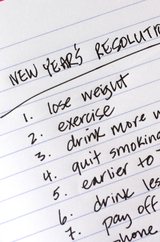 NEW YEAR'S RESOLUTI
1. lose weight
2. exercise
3. drink more w
4. quit smokin
5. earlier to
6. drink les
7. pay off
phone